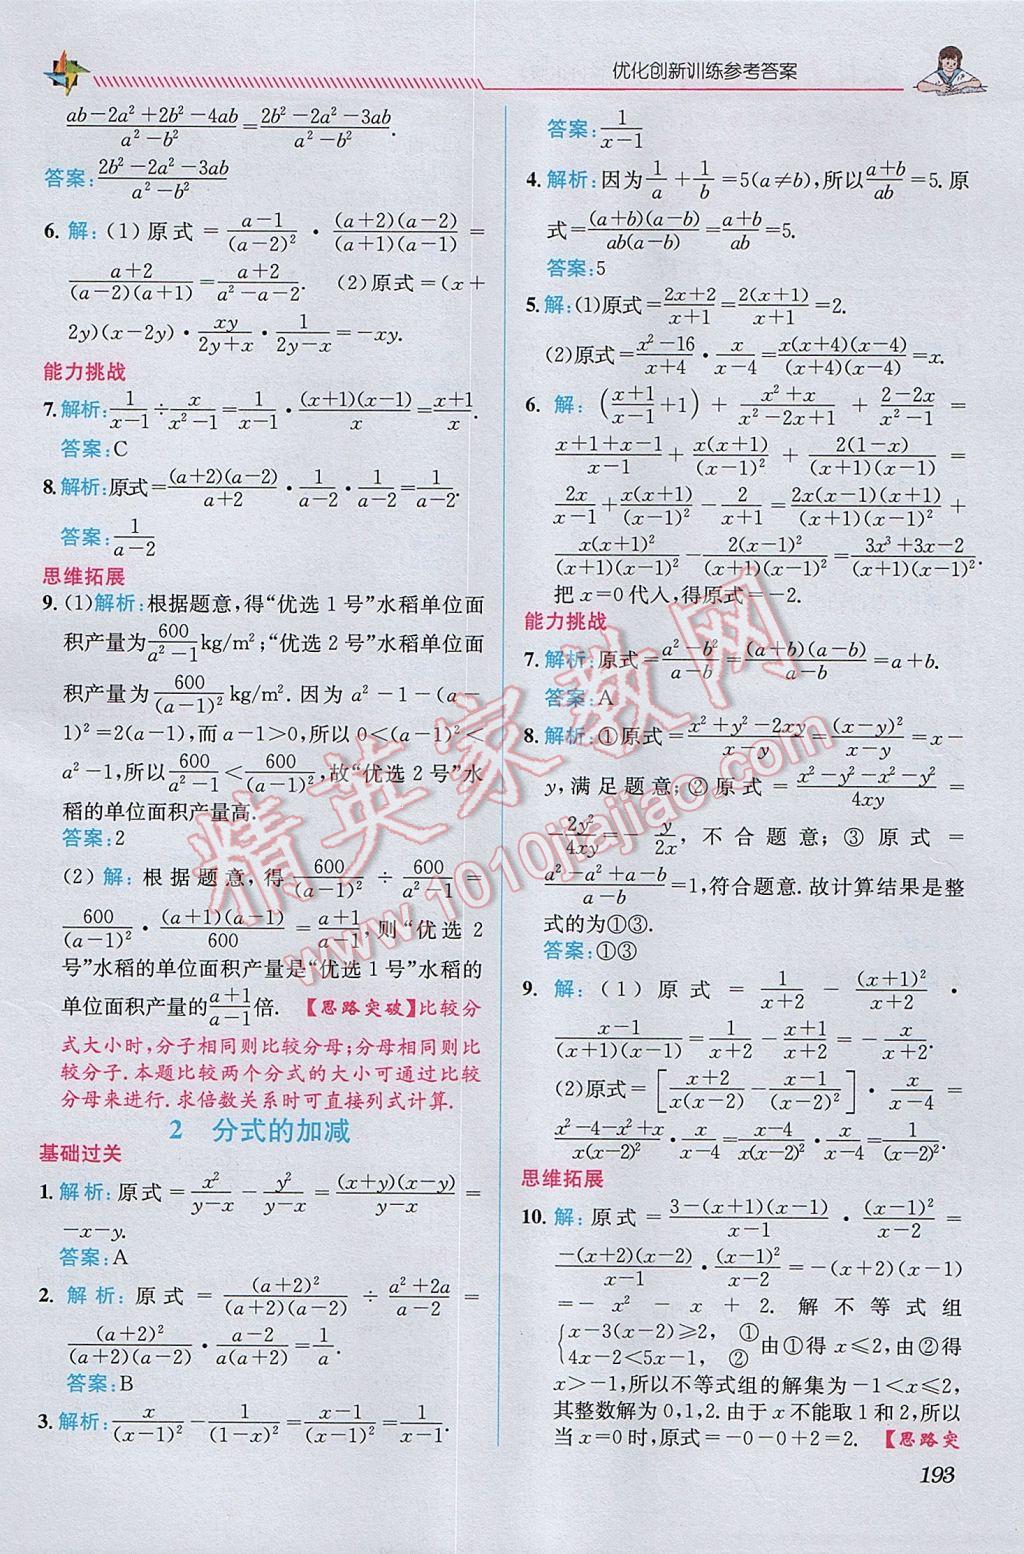 优化创新训练参考答案
(ab-2a²+2b²-4ab)/(a²-b²)=(2b²-2a²-3ab)/(a²-b²).
答案:(2b²-2a²-3ab)/(a²-b²)
6. 解:(1)原式=(a-1)/(a-2)²·((a+2)(a-2))/((a+1)(a-1))=
(a+2)/((a-2)(a+1))=(a+2)/(a²-a-2). (2)原式=(x+
2y)(x-2y)·xy/(2y+x)·1/(2y-x)=-xy.
能力挑战
7.解析:1/(x-1)÷x/(x²-1)=1/(x-1)·((x+1)(x-1))/x=(x+1)/x.
答案:C
8.解析:原式=((a+2)(a-2))/(a+2)·1/(a-2)·1/(a-2)=1/(a-2).
答案:1/(a-2)
思维拓展
9.(1)解析:根据题意,得“优选1号”水稻单位面
积产量为600/(a²-1)kg/m²;“优选2号”水稻单位面
积产量为600/(a-1)²kg/m². 因为a²-1-(a-
1)²=2(a-1),而a-1>0,所以0<(a-1)²<
a²-1,所以600/(a²-1)<600/(a-1)²,故“优选2号”水
稻的单位面积产量高.
答案:2
(2)解:根据题意,得600/(a-1)²÷600/(a²-1)=
600/(a-1)²·((a+1)(a-1))/600=(a+1)/(a-1),则“优选2
号”水稻的单位面积产量是“优选1号”水稻的
单位面积产量的(a+1)/(a-1)倍. 【思路突破】比较分
式大小时,分子相同则比较分母;分母相同则比
较分子.本题比较两个分式的大小可通过比较
分母来进行.求倍数关系时可直接列式计算.
2 分式的加减
基础过关
1.解析:原式=x²/(y-x)-y²/(y-x)=((x+y)(x-y))/(y-x)=
-x-y.
答案:A
2. 解析:原式=(a+2)²/((a+2)(a-2))÷(a²+2a)/(a-2)=
(a+2)²/((a+2)(a-2))·(a-2)/(a(a+2))=1/a.
答案:B
3.解析:x/(x-1)²-1/(1-x)²=(x-1)/(x-1)²=1/(x-1).
答案:1/(x-1)
4.解析:因为1/a+1/b=5(a≠b),所以(a+b)/ab=5.原
式=((a+b)(a-b))/(ab(a-b))=(a+b)/ab=5.
答案:5
5.解:(1)原式=(2x+2)/(x+1)=2(x+1)/(x+1)=2.
(2)原式=(x²-16)/(x+4)·x/(x-4)=(x(x+4)(x-4))/((x+4)(x-4))=x.
6. 解:((x+1)/(x-1)+1)+(x²+x)/(x²-2x+1)+(2-2x)/(x²-1)=
(x+1+x-1)/(x-1)+x(x+1)/(x-1)²+2(1-x)/((x+1)(x-1))=
2x/(x-1)+x(x+1)/(x-1)²-2/(x+1)=(2x(x-1)(x+1))/((x+1)(x-1)²)+
x(x+1)²/((x+1)(x-1)²)-2(x-1)²/((x+1)(x-1)²)=(3x³+3x-2)/((x+1)(x-1)²).
把x=0代人,得原式=-2.
能力挑战
7.解析:原式=(a²-b²)/(a-b)=((a+b)(a-b))/(a-b)=a+b.
答案:A
8.解析:①原式=(x²+y²-2xy)/(x-y)=(x-y)²/(x-y)=x-
y,满足题意;②原式=(x²-y²-x²-y²)/4xy=
-2y²/4xy=-y/2x,不合题意;③原式=
(a²-a²+a-b)/(a-b)=1,符合题意.故计算结果是整
式的为①③.
答案:①③
9. 解:(1)原式=1/(x+2)-(x+1)²/(x+2)·
(x-1)/((x+1)(x-1))=1/(x+2)-(x+1)/(x+2)=-x/(x+2).
(2)原式=[(x+2)/(x(x-2))-(x-1)/(x-2)²]·x/(x-4)=
(x²-4-x²+x)/(x(x-2)²)·x/(x-4)=(x-4)/(x(x-2)²)·x/(x-4)=1/(x-2)².
思维拓展
10.解:原式=(3-(x+1)(x-1))/(x-1)·(x-1)²/(x-2)=
(-(x+2)(x-2))/(x-1)·(x-1)²/(x-2)=-(x+2)(x-1)
=-x²-x+2. 解不等式组
{x-3(x-2)≥2, ① 4x-2<5x-1, ② 由①得x≤2,由②得
x>-1,所以不等式组的解集为-1<x≤2,
其整数解为0,1,2.由于x不能取1和2,所以
当x=0时,原式=-0-0+2=2. 【思路突
193
精英家教网
www.1010jiajiao.com